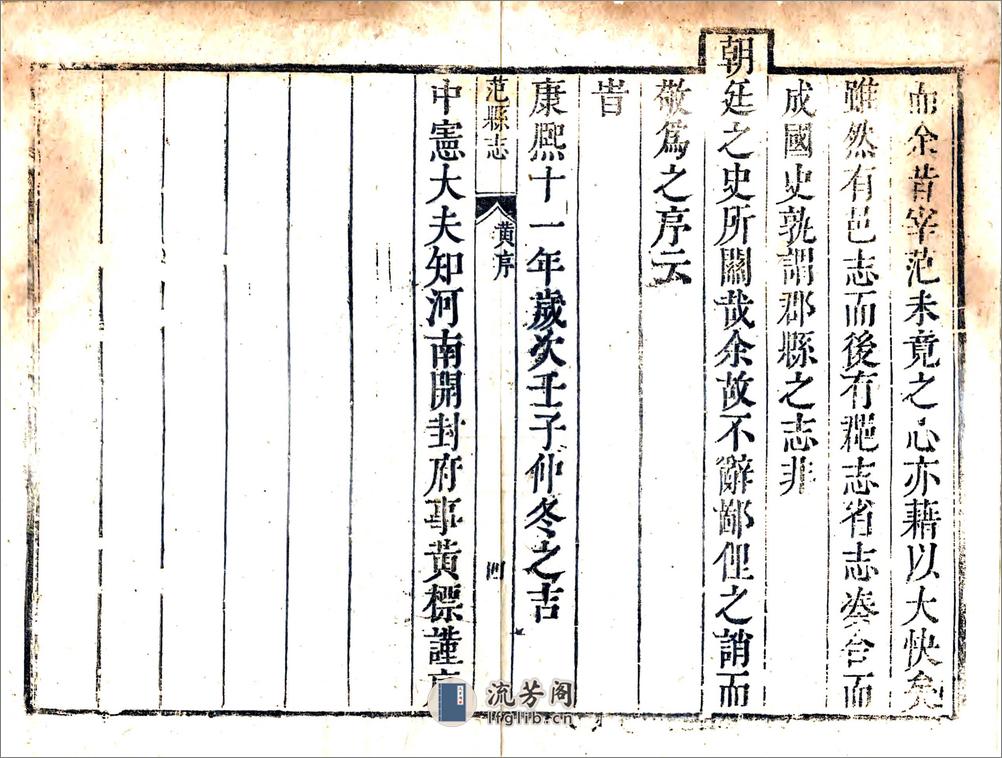 而余昔宰范未竟之心亦藉以大快矣
雖然有邑志而後有郡志省志奏合而
成國史孰謂郡縣之志非
朝廷之史所關哉余故不辭鄙俚之誚而
敬爲之序云
旹
康熙十一年歲次壬子仲冬之吉
范縣志 黃序 四
中憲大夫知河南開封府事黃標謹序
流芳阁
lfglib.cn